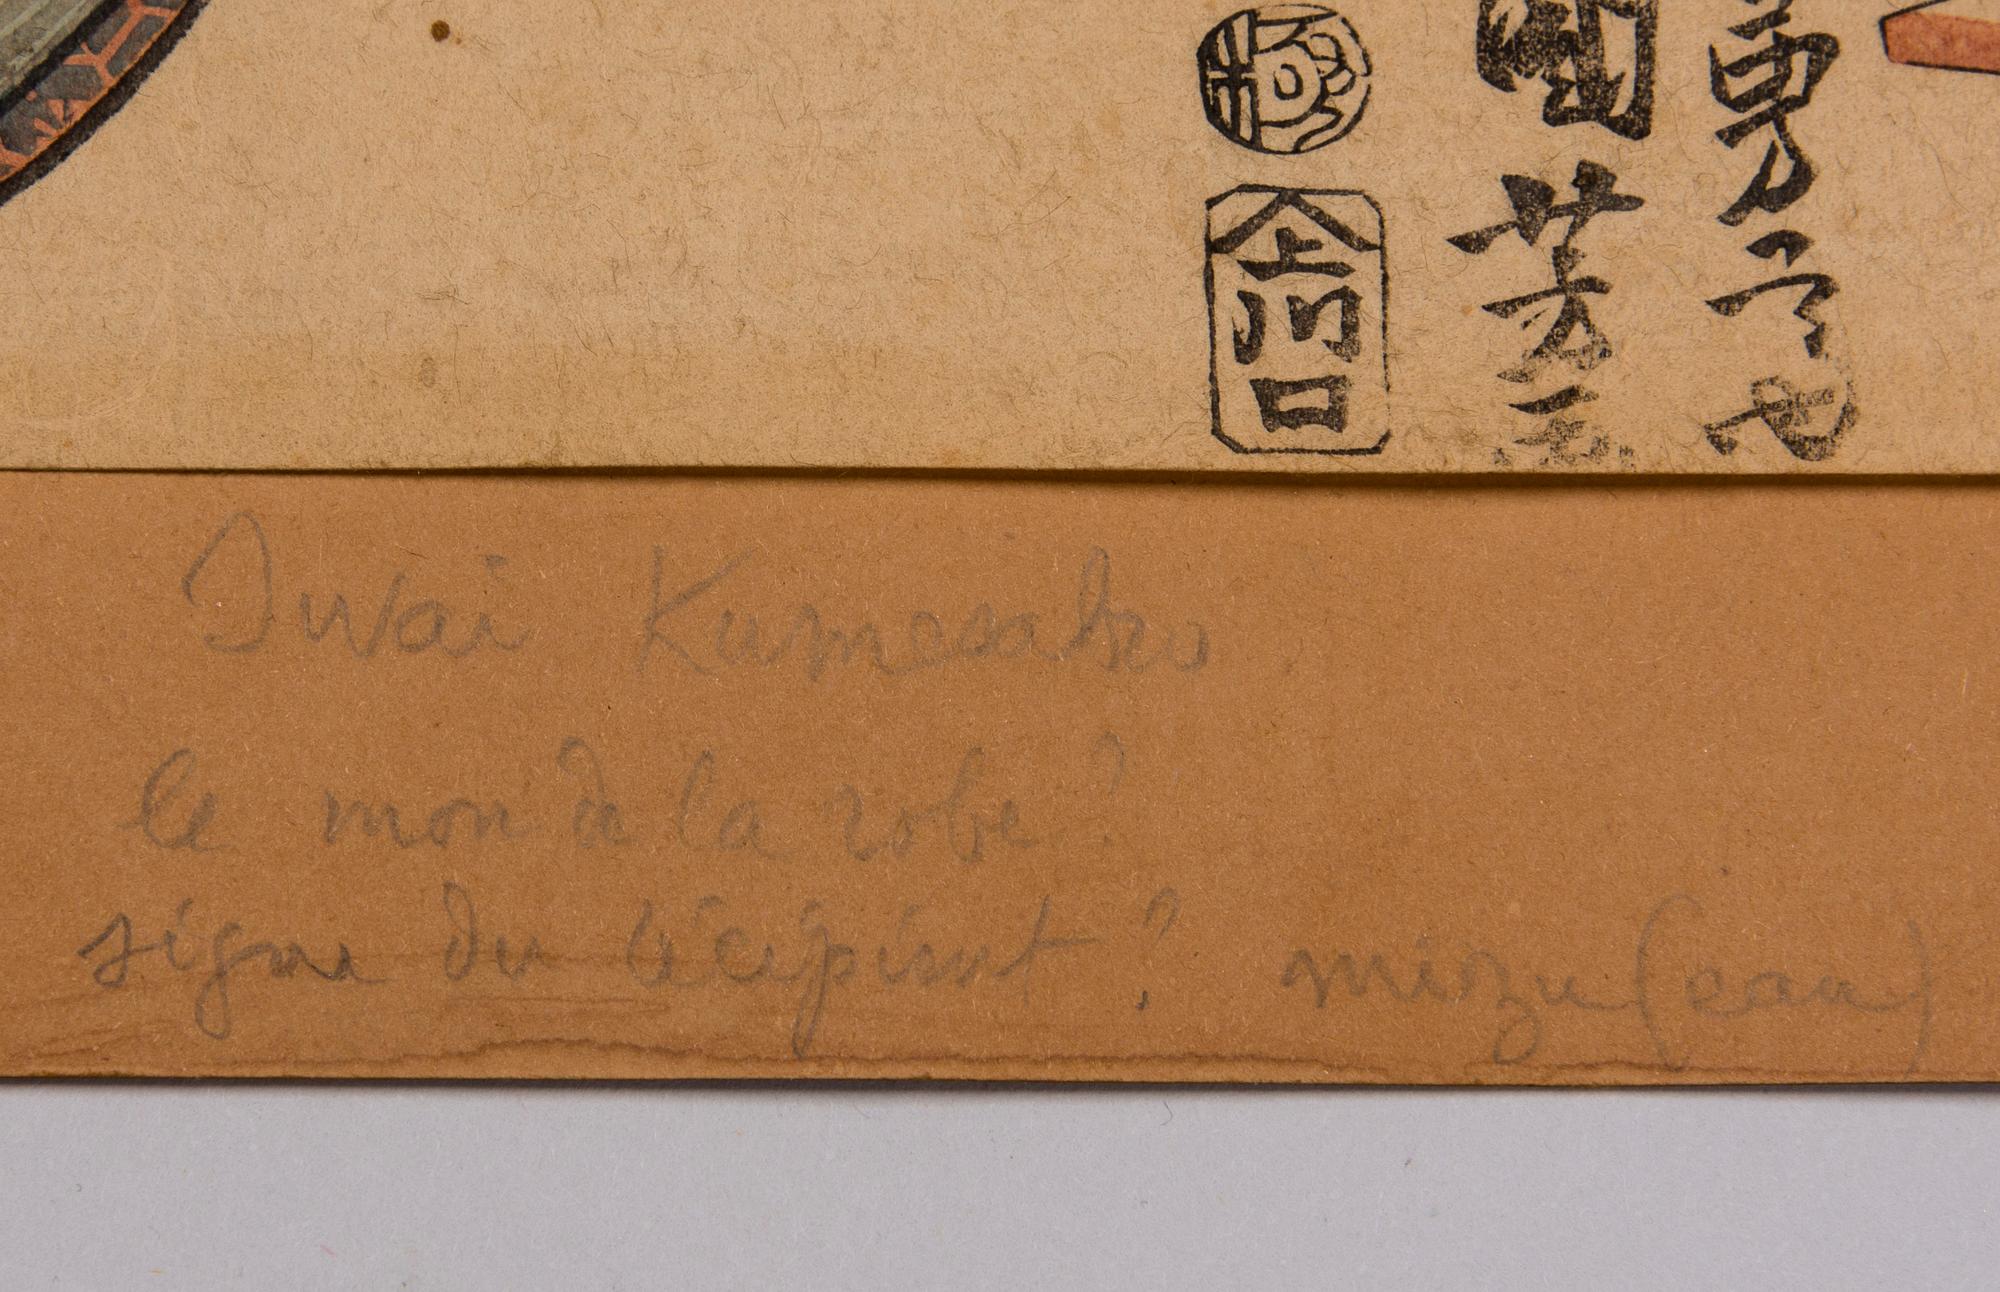 勇之也
國芳画
上川口
Iwai Kumesabro
le mon de la robe ?
signe du récipient ? mizu (eau)